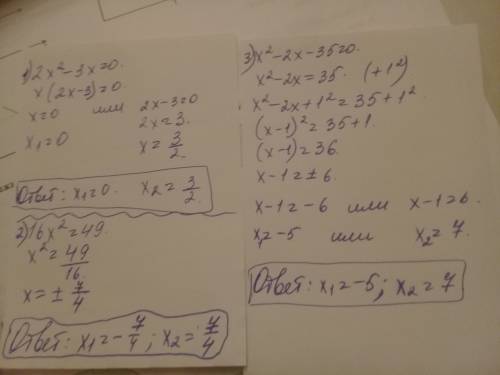 1) 2x² - 3x = 0.
x(2x-3)=0
x=0 или 2x-3=0
2x=3.
x₁=0 x = 3/2.
Ответ: x₁=0. x₂ = 3/2.
2) 16x² = 49.
x² = 49/16.
x = ± 7/4
Ответ: x₁=-7/4; x₂ = 7/4
3) x² - 2x - 35=0.
x² - 2x = 35. (+1²)
x² - 2x + 1² = 35 + 1²
(x-1)² = 35+1.
(x-1) = 36.
x-1 = ± 6.
x-1 = -6 или x-1=6.
x₁=-5 или x₂ = 7.
Ответ: x₁=-5; x₂ = 7